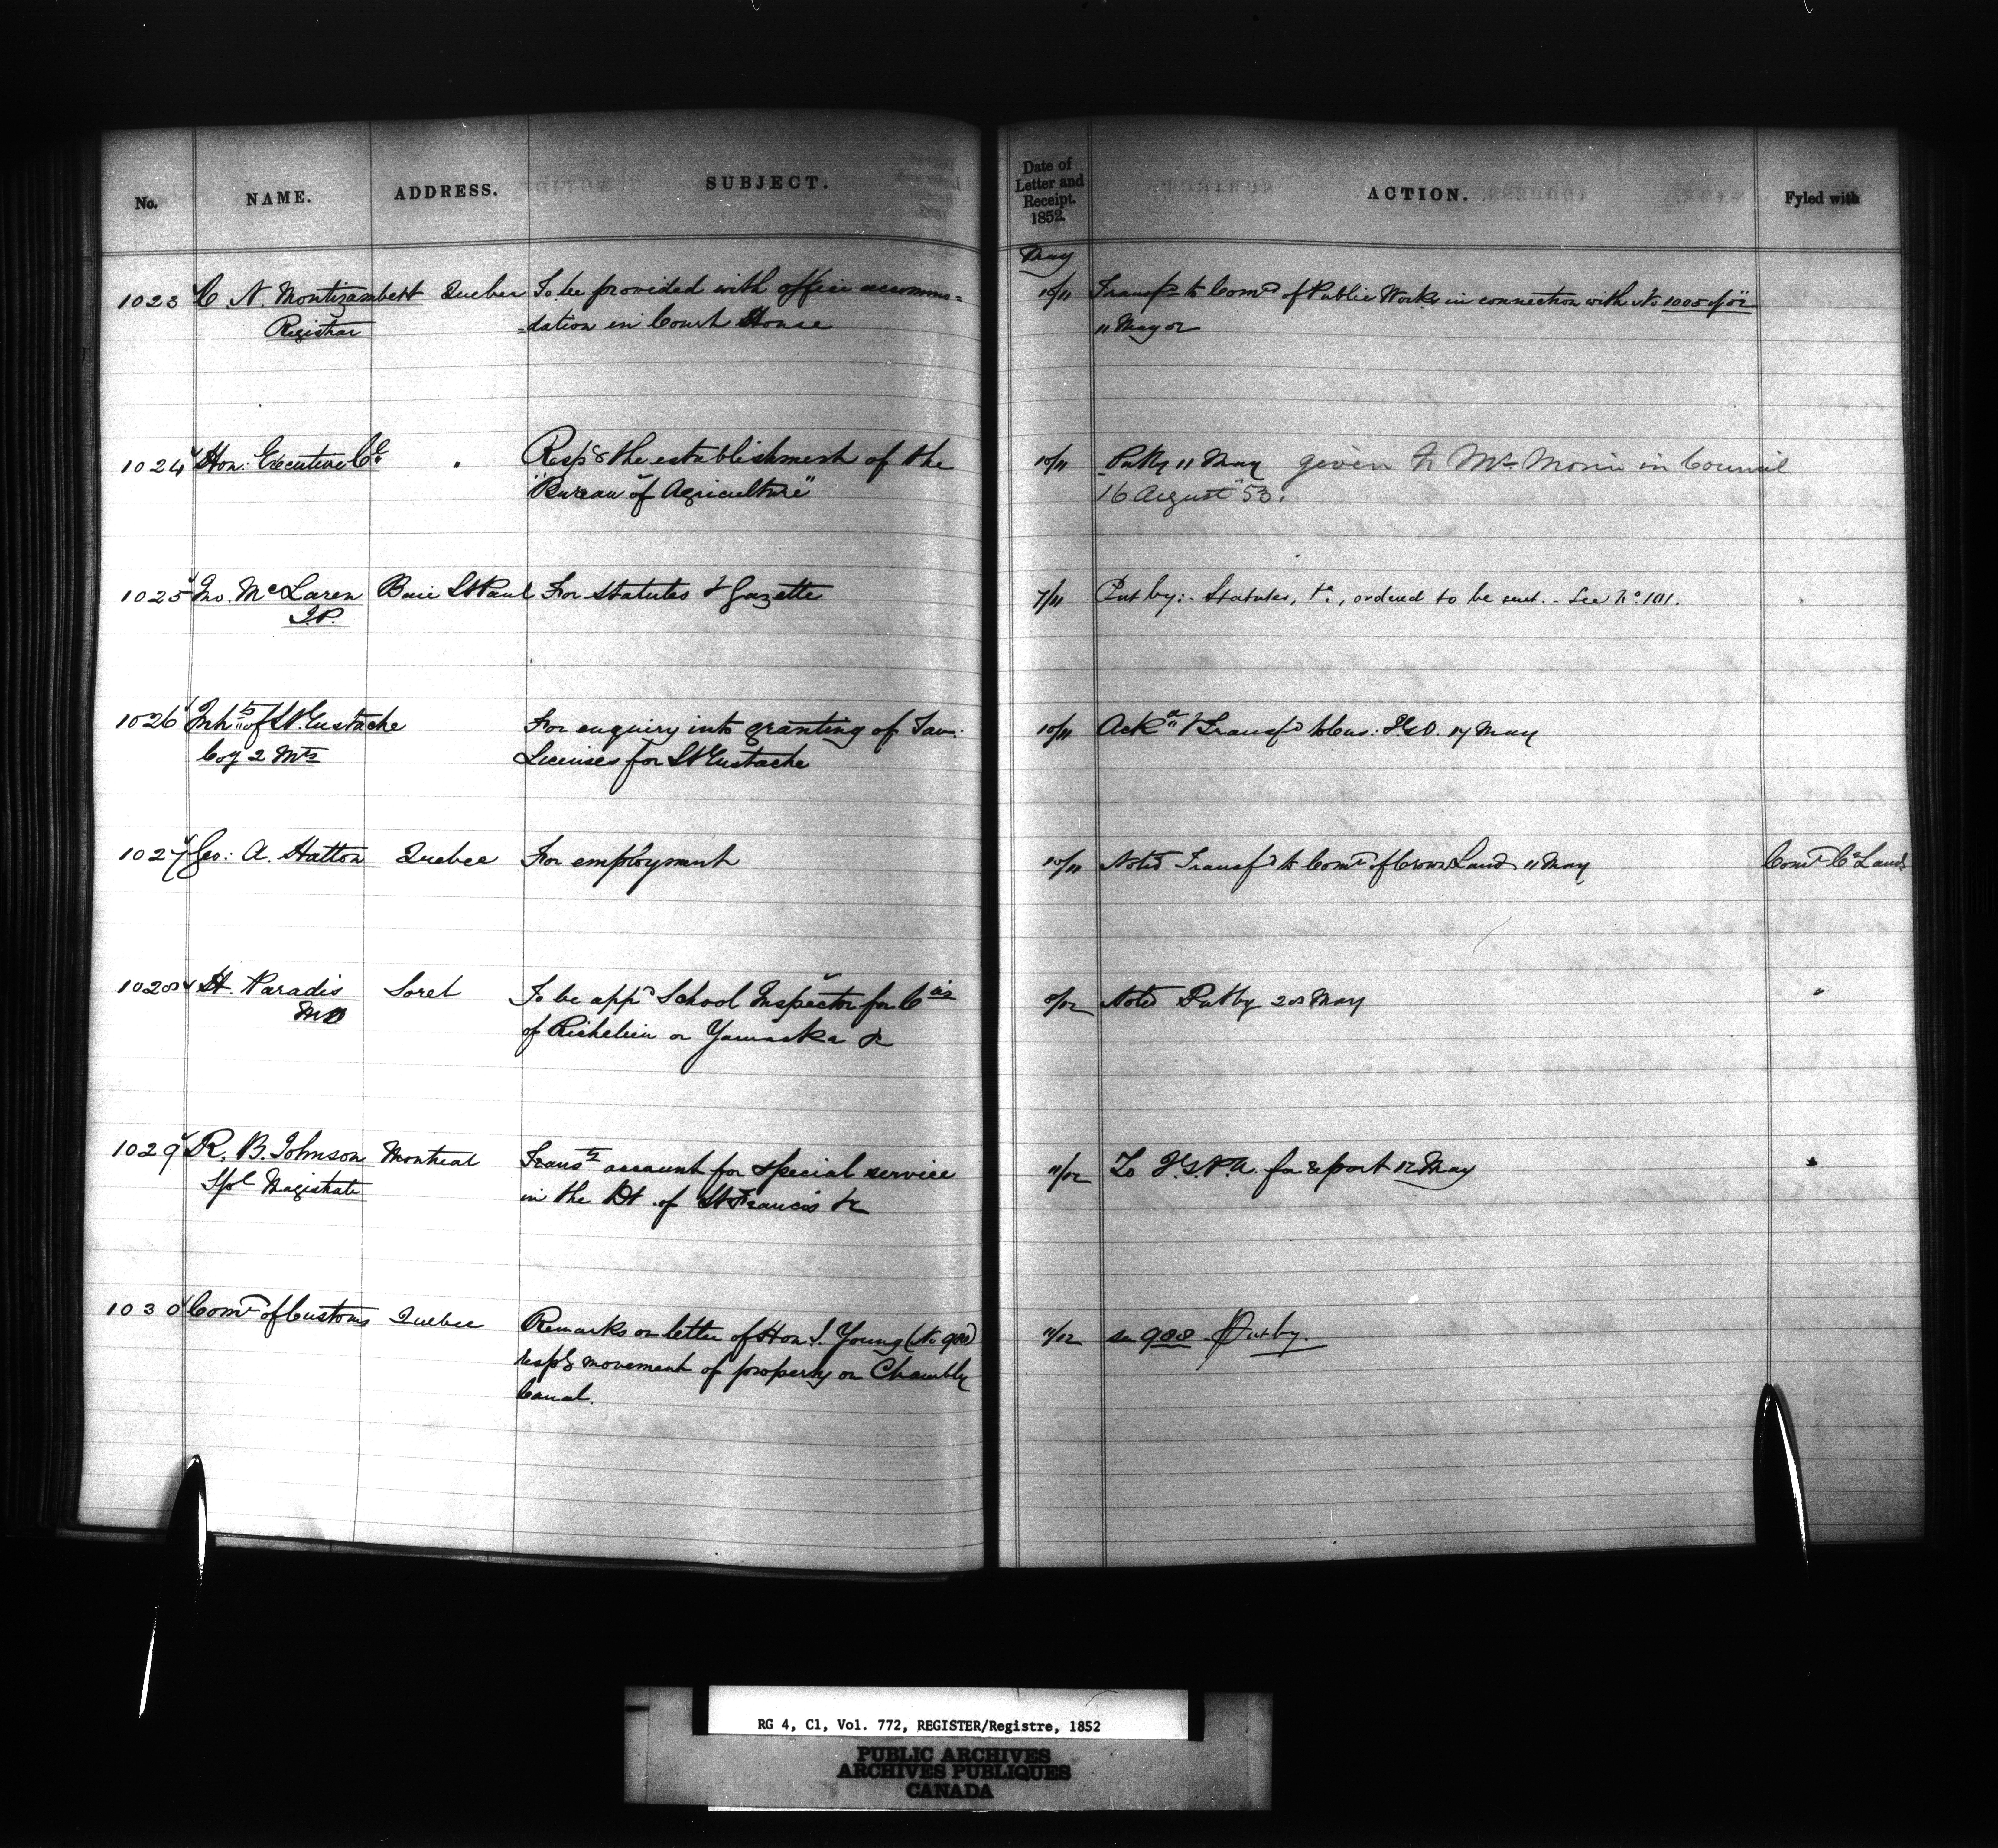 No. NAME. ADDRESS. SUBJECT.
Date of Letter and Receipt. 1852. ACTION. Fyled with
May
1023 C N. Montizambert Quebec To be provided with office accommo= 10/11 Transfd to Comrs of Public Works in connection with No 1005 of 52
Registrar =dation in Court House 11 May 52
1024 Hon: Executive Cl " Respg the establishment of the 10/11 Putby 11 May given to Mr Morin in Council
"Bureau of Agriculture" 16 August 53.
1025 Jno. McLaren Baie St Paul For Statutes & Gazette 7/11 Put by:- Statutes, &c., ordered to be sent. - See No. 101.
J.P.
1026 Inhts of St. Eustache For enquiry into granting of Tav: 10/11 Ackd & Transfd to 17 May
Coy 2 Mts Licenses for St Eustache
1027 Geo: A. Hatton Quebec For employment 10/11 Noted Transfd to Comr of Crown Lands 11 May Comr Cn Lands
1028 H. Paradis Sorel To be appd School Inspector for Cties 8/12 Noted Putby 28 May "
MD of Richelieu or Yamaska &c
1029 R. B. Johnson Montreal Transtg account for special service 11/12 To I.G.P.A. for report 12 May
Spl Magistrate in the Dt. of St Francis &c
1030 Comr of Customs Quebec Remarks on letter of Hon. J. Young (No 988) 11/12 See 988 Putby.
respg movement of property on Chambly
Canal.
RG 4, C1, Vol. 772, REGISTER/Registre, 1852
PUBLIC ARCHIVES
ARCHIVES PUBLIQUES
CANADA